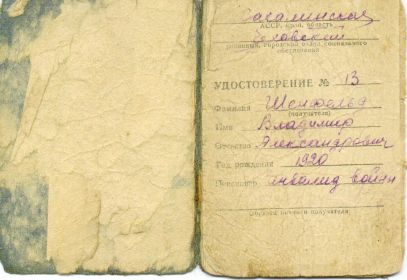 Сахалинская
АССР, край, область
Чеховский
районный, городской отдел социального
обеспечения
УДОСТОВЕРЕНИЕ № 13
Фамилия
(получателя)
Имя Владимир
Отчество Александрович
Год рождения 1920
Пенсионер инвалид войны